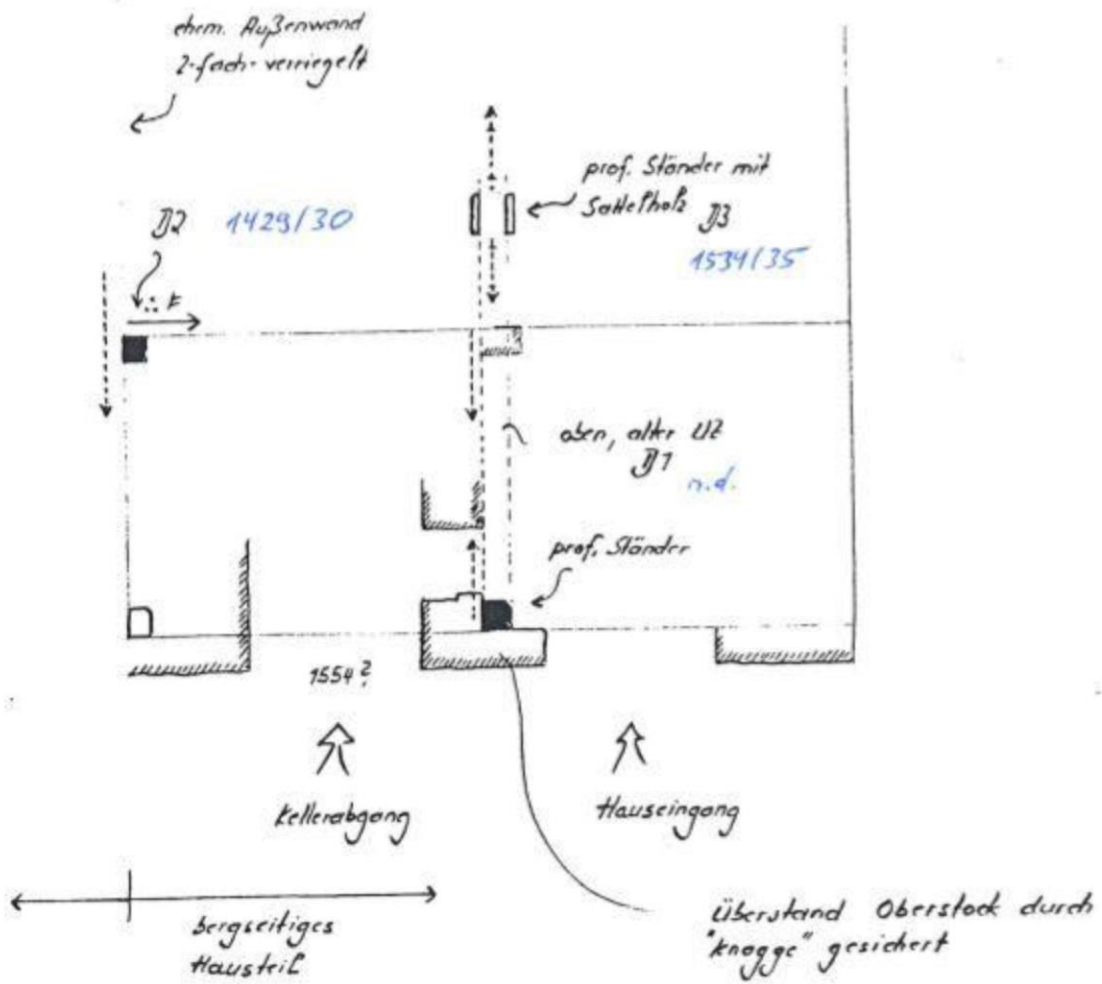 ehem. Außenwand
2-fach-verriegelt
prof. Ständer mit
Sattelholz D3
1534/35
D2 1429/30
oben, alter UZ
D1
n.d.
prof. Ständer
1554?
Kellerabgang
Hauseingang
bergseitiges
Hausteil
Überstand Oberstock durch
"Knagge" gesichert